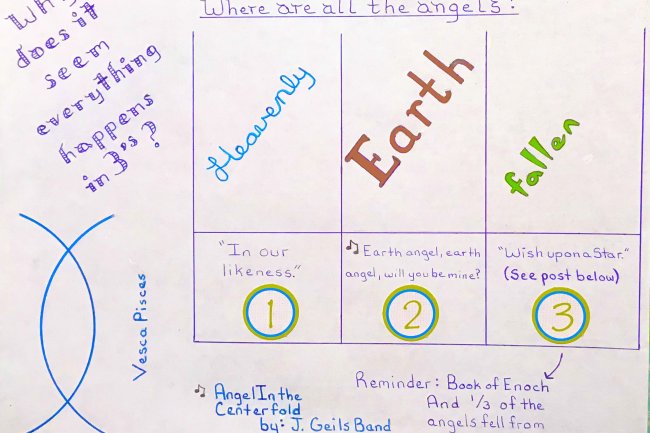 Where are all the angels:
Why
does it
seem
everything
happens
in 3's?
Heavenly
Earth
fallen
"In our
likeness."
1
🎵 Earth angel, earth
angel, will you be mine?
2
"Wish upon a Star."
(See post below)
3
Vesca Pisces
🎵 Angel In the
Centerfold
by: J. Geils Band
Reminder: Book of Enoch
And 1/3 of the
angels fell from